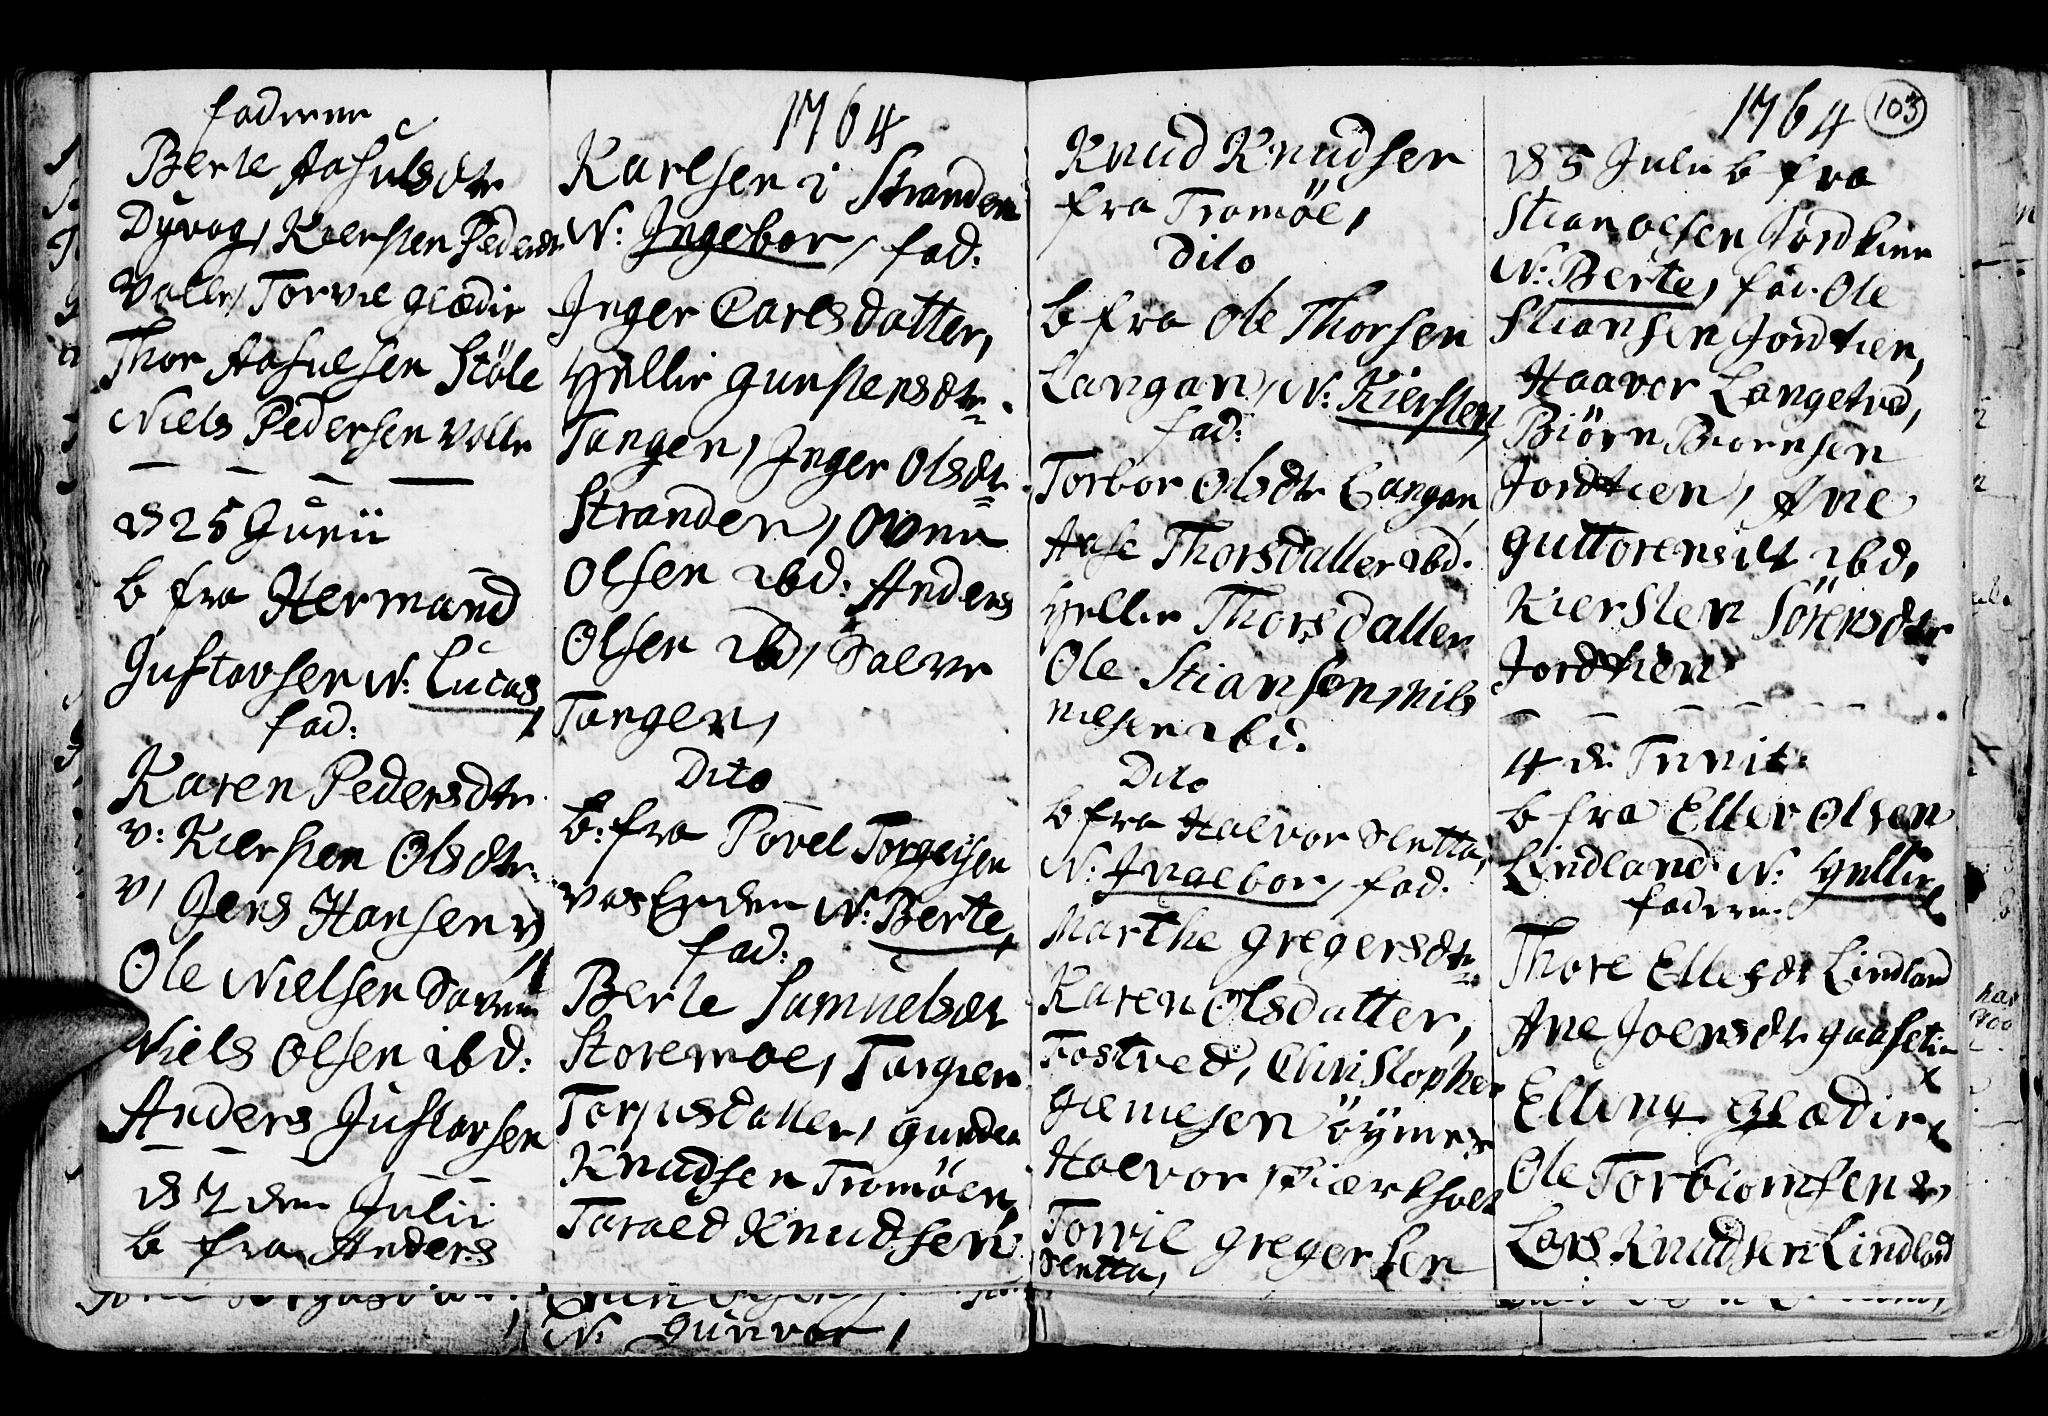 fadrene
Berte Aasulsdtr
Dyvog, Kiersten Pedersdtr
Valle, Torvil Glædie
Thor Aasulsen Støle
Niels Pedersen Valle
D 25 Junii
b fra Hermand
Gustavsen N: Lucas,
fad:
Karen Pedersdtr
v: Kiersten Olsdtr
v, Jens Hansen v,
Ole Nielsen
Niels Olsen ibd:
Anders Justavsen
D 2 den Julii
b fra Anders
1764
Karlsen i Stranden
N: Ingebor, fad:
Inger Carlsdatter,
Hellie Gunstensdtr
Tangen, Inger Olsdtr
Stranden, Oven
Olsen ibd: Anders
Olsen ibd, Salve
Tangen,
Dito
b: fra Povel Torgeisen
Vas Enden N: Berte,
fad:
Berte Samuelsdtr
Storemoe, Torgier
Torjusdatter, Gunder
Knudsen Tromöen,
Tarald Knudsen
N: Gunvor,
1764
103
Knud Knudsen
fra Tromöe,
Dito
b fra Ole Thorsen
Langan, N: Kiersten,
fad:
Torbor Olsdtr Langan
Aase Thorsdatter ibd.
Hellie Thorsdatter
Ole Stiansen, Nils
Nielsen ibd.
Dito
b fra Halvor Sletta,
N: Ingebor, fad:
Marthe Gregersdtr
Karen Olsdatter,
Fostved, Christopher
Halvor
Torvil Gregersen
Sletta,
D 5 Julii b fra
Stian Olsen Jordkien
N: Berte, fad. Ole
Stiansen Jordtien,
Haavor Langetved,
Biörn Biornsen
Jordtien, Ane
Guttorensdt ibd,
Kiersten Sörensdtr
Jordtien
4 de Trinit:
b fra Ellev Olsen
Lindland N: Hellie
fadrene
Thore Ellefsdt Lindland
Ane Joensdtr
Elling Glædie
Ole Torbiornsen
Lars Knudsen Lindland